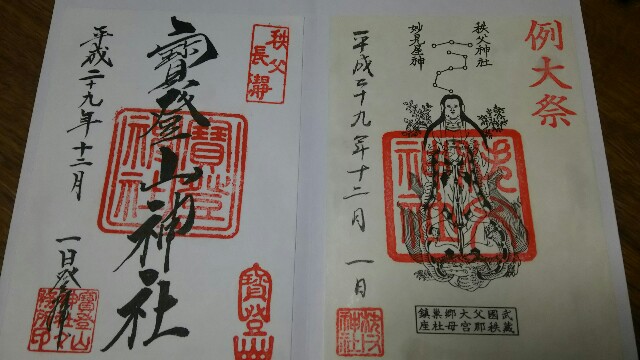 例大祭
秩父神社
妙見星神
秩父
神社
平成二十九年十二月一日
武蔵
國秩
父郡
大宮
郷母
巣社
鎮座
秩父
神社
秩父
長瀞
寳登山神社
寳登
山
神社
平成二十九年十二月
一日
寳登山
神社
寳登山